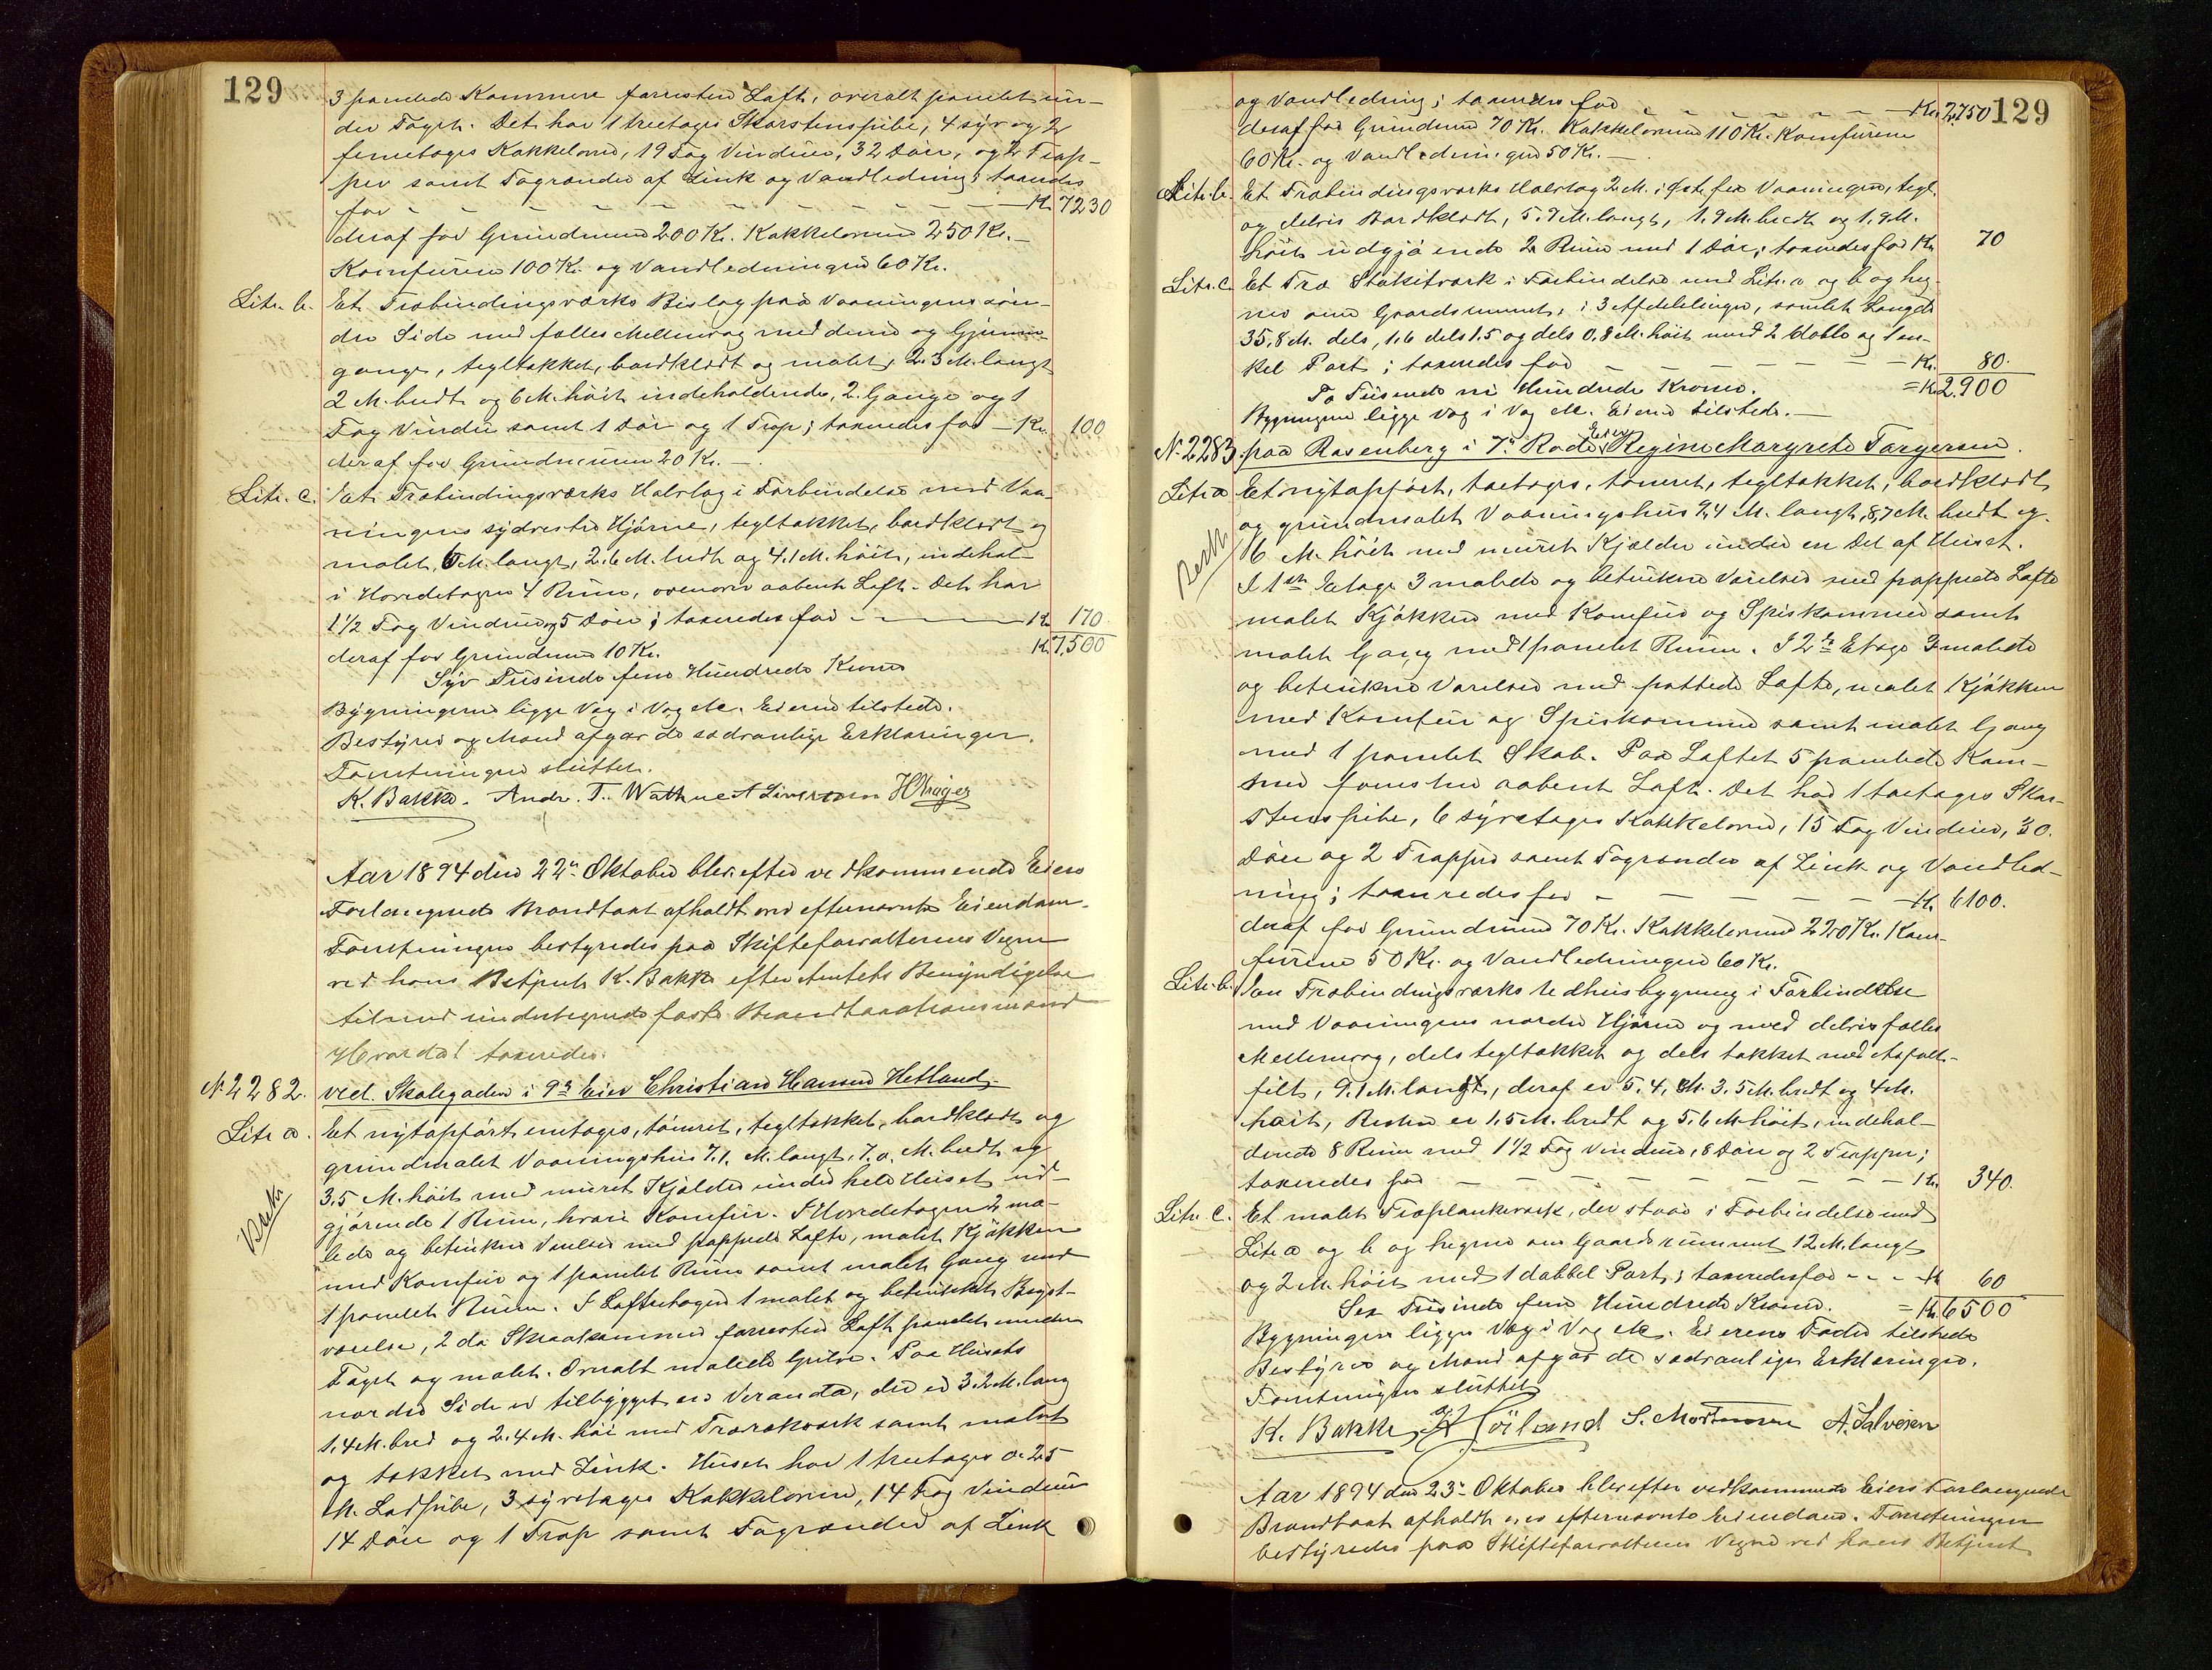 129
3 panelede Kammere forresten Loft, overalt panelet un-
der Taget. Det har 1 treetages Skorstenspibe, 4 syv og 2
femetages Kakkelovne, 19 Fag Vinduer, 32 Døre, og 2 Trap-
per samt Tagrender af Zink og Vandledning; taxeredes
for - - - - - - - - - Kr. 7230
deraf for Grundmuren 200 Kr. Kakkelovnene 250 Kr.
Komfurene 100 Kr. og Vandledningen 60 Kr.
Litr. b. Et Træbindingsværks Bislag paa Vaaningens søn-
dre Side med fælles Mellemvæg med denne og Gjennem-
gange, tegltækket, bordklædt og malet, 2.3 M. langt
2 M. bredt og 6 M. høit indeholdende, 2 Gange og 1
Fag Vindu samt 1 Dør og 1 Trap; taxeredes for - Kr. 100
deraf for Grundmuren 20 Kr. -
Litr. c. Et Træbindingsværks Halvtag i Forbindelse med Vaa-
ningens sydvestre Hjørne, tegltækket, bordklædt og
malet, 6 M. langt, 2.6 M. bredt og 4.1 M. høit, indehol-
i Hovedetagen 4 Rum, ovenover aabent Loft. Det har
1 1/2 Fag Vinduer og 5 Døre; taxeredes for - - Kr. 170
deraf for Grundmuren 10 Kr. Kr. 7,500
Syv Tusinde fem Hundrede Kroner
Bygningerne ligge Væg i Væg etc. Eieren tilstede.
Bestyrer og Mænd afgav de sædvanlige Erklæringer.
Forretningen sluttet.
K. Bakke. Andr. T. Wathne A Sivertsen H Kruger
Aar 1894 den 22n Oktober blev efter vedkommende Eiers
Forlangende Brandtaxt afholdt over efternævnte Eiendom.
Forretningen bestyredes paa Skifteforvalterens Vegne
ved hans Betjent K. Bakke efter Amtets Bemyndigelse
tilmed undertegnede faste Brandtaxationsmænd
Hvordal taxeredes:
N. 2282. ved Skolegaden i 9n Eier Christian Hansen Hetland.
Litr a. Et nytopført enetages, tømret, tegltækket, bordklædt og
grundmalet Vaaningshus 7.1. M. langt, 7.0. M. bredt og
3.5 M. høit med muret Kjælder under hele Huset ud-
gjørende 1 Rum, hvori Komfur. I Hovedetagen 2 ma-
lede og betrukne Værelser med pappede Lofte, malet Kjøkken
med Komfur og 1 panelet Rum samt malet Gang med
1 panelet Rum. I Loftsetagen 1 malet og betrukket Kvist-
værelse, 2 do Skraakammer forresten Loft panelet under
Taget og malet. Overalt malede Gulve. Paa Husets
nordre Side er tilbygget en Veranda, der er 3.2 M. lang
1.4 M. bred og 2.4 M. høi med Trærækværk samt malet
og tækket med Zink. Huset har 1 treetages 0.25
M. Lodpibe, 3 syvetages Kakkelovne, 14 Fag Vinduer
14 Døre og 1 Trap samt Tagrender af Zink
129
og Vandledning; taxeredes for - - - - - Kr. 2750
deraf for Grundmuren 70 Kr. Kakkelovnene 110 Kr. Komfurene
60 Kr. og Vandledningen 50 Kr. -
Litr. b. Et Træbindingsværks Halvtag 2 M. i Øst for Vaaningen, tegl.
og delvis Bordklædt, 5.7 M. langt, 1.9 M. bredt og 1.9 M.
høit udgjørende 2 Rum med 1 Dør; taxeredes for Kr. 70
Litr. c. Et Træ Stakitværk i Forbindelse med Litr. a og b og heg-
ner om Gaardsrummet, i 3 Afdelinger, samlet Længde
35.8 M. dels, 1.6 dels 1.5 og dels 0.8 M. høit med 2 doble og 1 en-
kel Port; taxeredes for - - - - - Kr. 80.
To Tusinde ni Hundrede Kroner. = Kr. 2.900
Bygningerne ligge Væg i Væg etc. Eieren tilstede. -
N. 2283. paa Rosenberg i 7n Rode, Eier Regine Margrete Torgersen.
Litr a Et nytopført, toetages, tømret, tegltækket, bordklædt
og grundmalet Vaaningshus 9,4 M. langt, 8,7 M. bredt og
6 M. høit med muret Kjælder under en Del af Huset.
I 1ste Etage 3 malede og betrukne Værelser med pappede Lofte
malet Kjøkken med Komfur og Spiskammer samt
malet Gang med 1 panelet Rum. I 2de Etage 3 malede
og betrukne Værelser med pappede Lofte, malet Kjøkken
med Komfur og Spiskammer samt malet Gang
med 1 panelet Skab. Paa Loftet 5 panelede Kam-
mer forresten aabent Loft. Det har 1 toetages Skor-
stenspibe, 6 syvetages Kakkelovne, 15 Fag Vinduer, 30.
Døre og 2 Trapper samt Tagrender af Zink og Vandled-
ning; taxeredes for - - - - - Kr. 6100.
deraf for Grundmuren 70 Kr. Kakkelovnene 220 Kr. Kom-
furene 50 Kr. og Vandledningen 60 Kr.
Litr. b. En Træbindingsværks Udhusbygning i Forbindelse
med Vaaningens nordre Hjørne og med delvis fælles
Mellemvæg, dels tegltækket og dels tækket med Asfalt-
filt, 9.1 M. langt, deraf er 5.4, M. 3.5 M. bredt og 4 M.
høit, Resten er 1,5 M. bredt og 5,6 M. høit, indehol-
dende 8 Rum med 1 1/2 Fag Vinduer, 8 Døre og 2 Trapper;
taxeredes for - - - - - - Kr. 340.
Litr. c. Et malet Træplankeværk, der staar i Forbindelse med
Litr a og b og hegner om Gaardsrummet 12 M. langt
og 2 M. høit med 1 dobbel Port; taxeredes for - - - Kr 60
Sex Tusinde fem Hundrede Kroner. = Kr. 6500
Bygningerne ligger Væg i Væg etc. Eierens Fader tilstede
Bestyrer og Mænd afgav de sædvanlige Erklæringer.
Forretningen sluttet
K. Bakke, Høiland S. Mortensen A. Salvesen
Aar 1894 den 23n Oktober blev efter vedkommende Eiers Forlangende
Brandtaxt afholdt over efternævnte Eiendom. Forretningen
bestyredes paa Skifteforvalterens Vegne ved hans Betjent